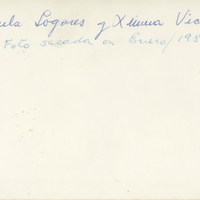 ula Logores y Ximena Vic
Foto sacada en Enero/195